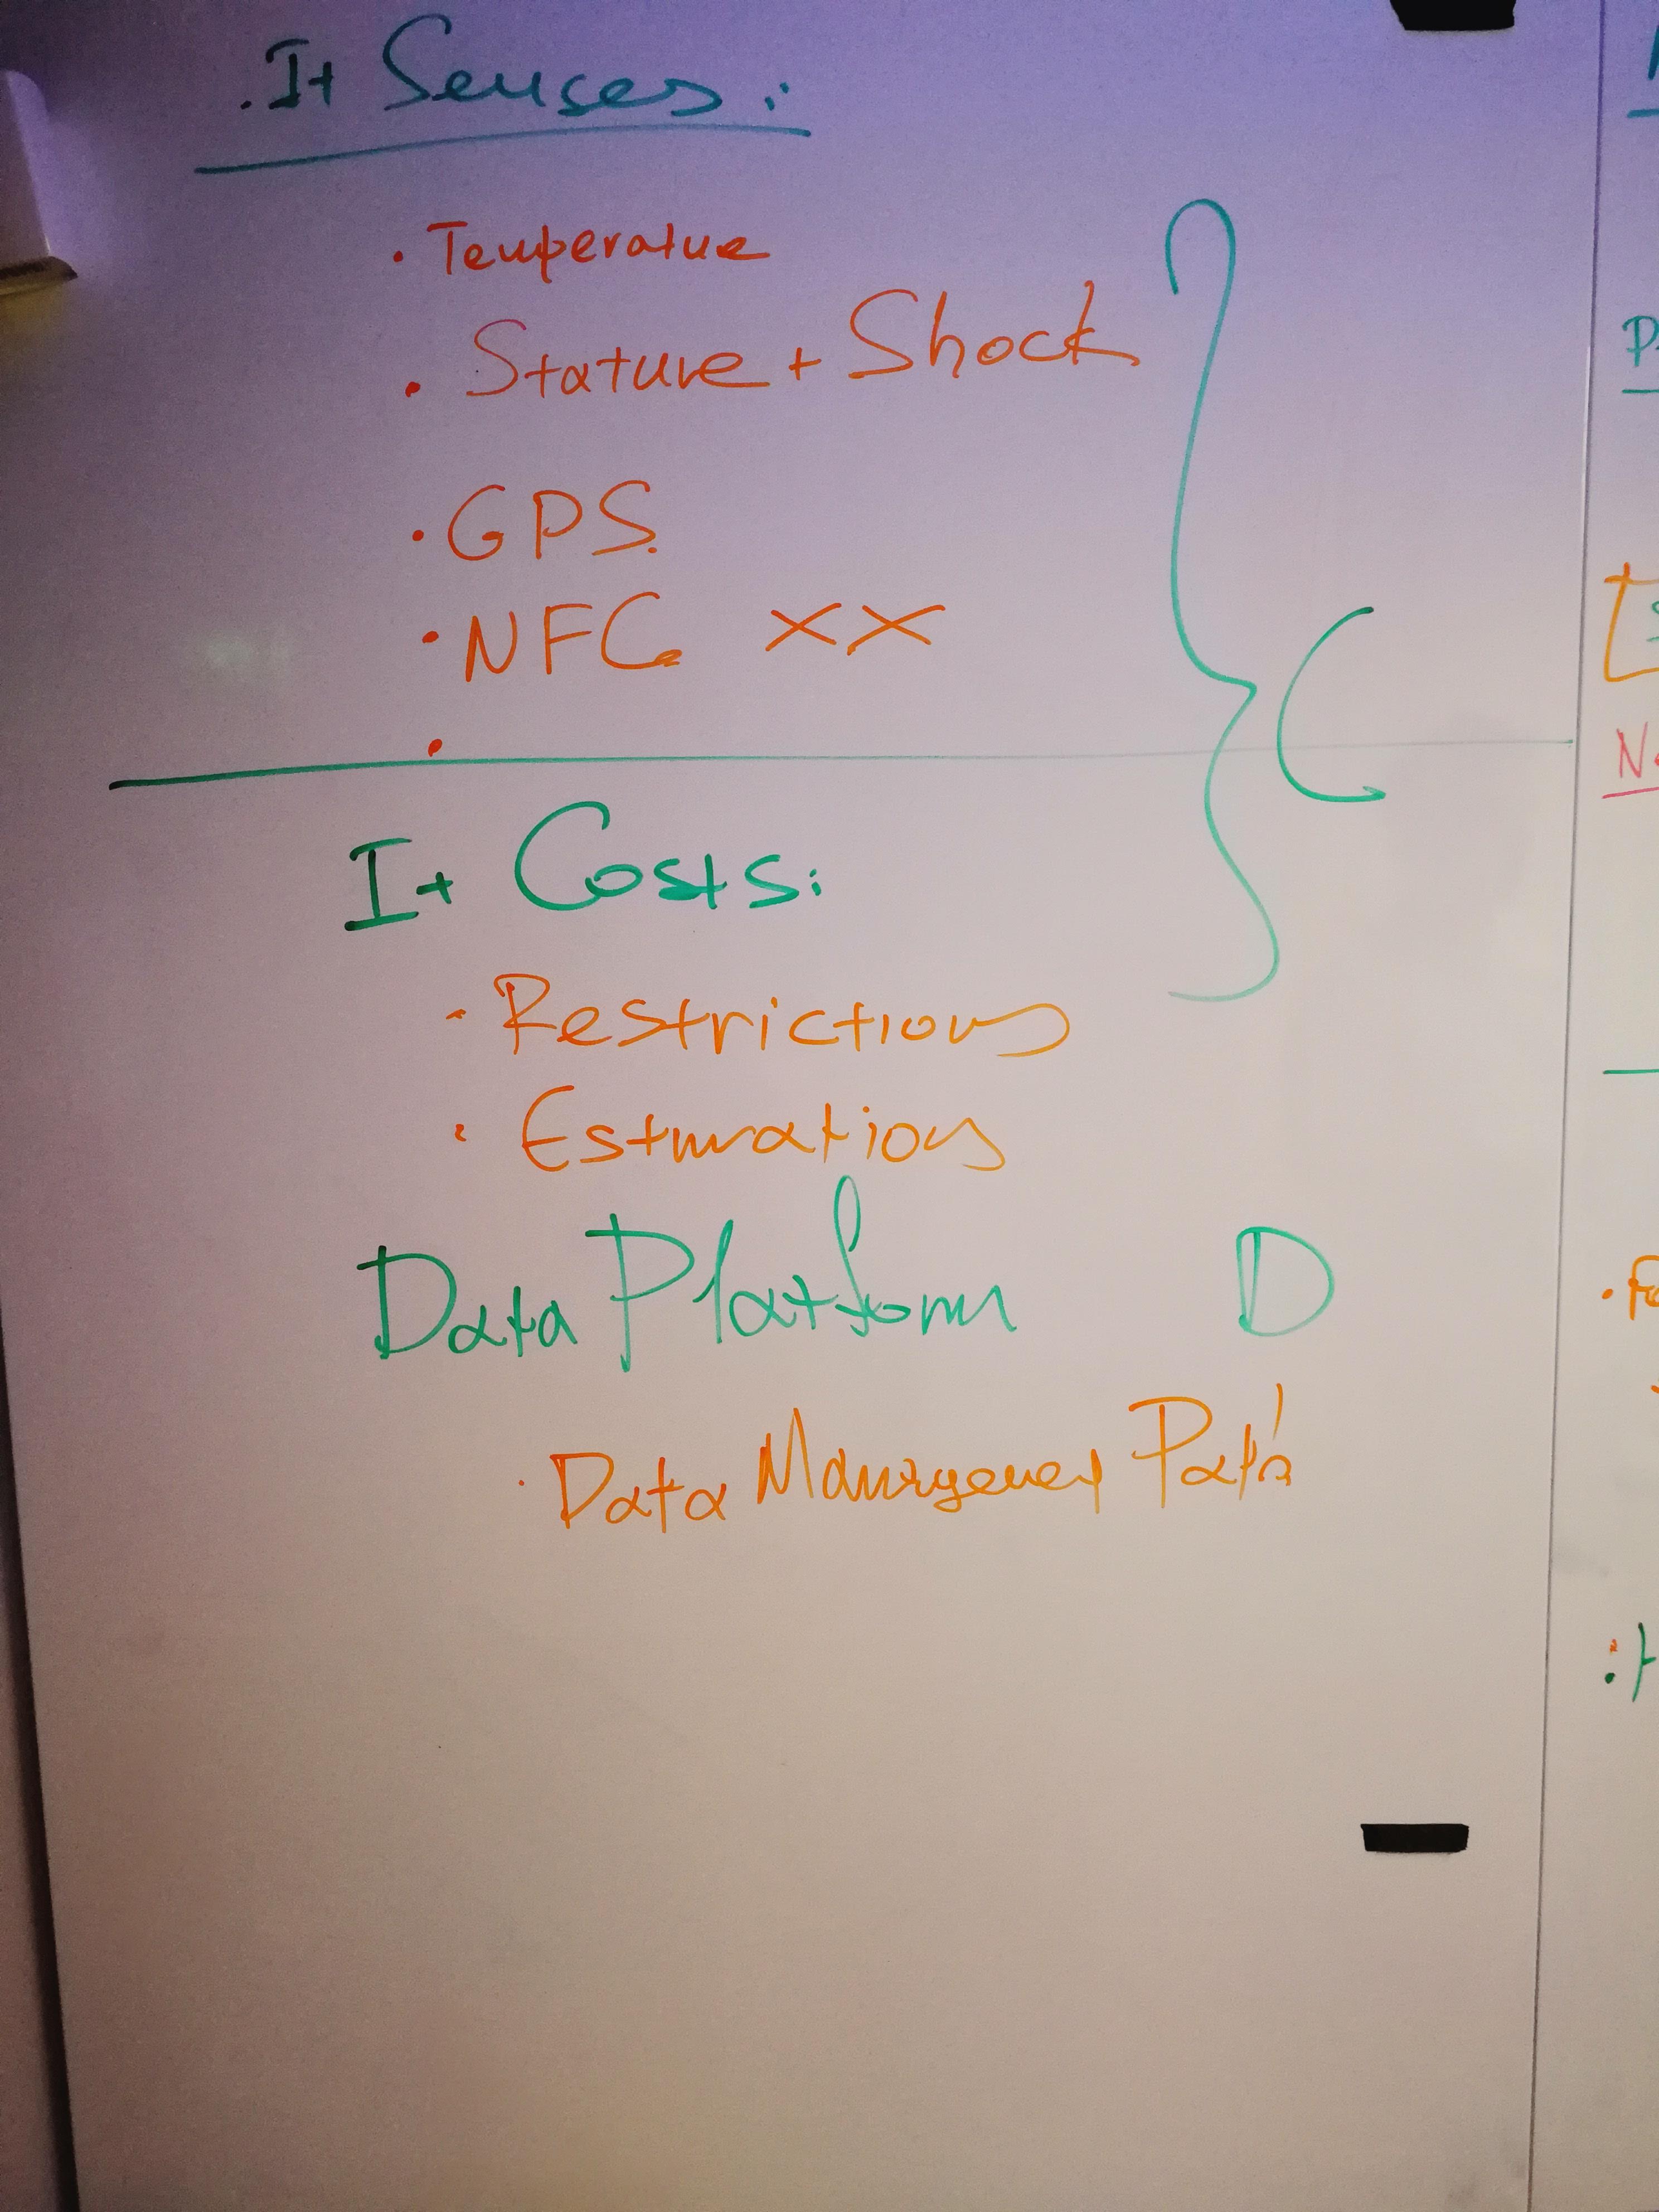 . It Senses :
• Temperature
• Stature + Shock
• GPS.
• NFC XX
•
C
It Costs:
• Restrictions
• Estimations
Data Platform D
• Data Management Path